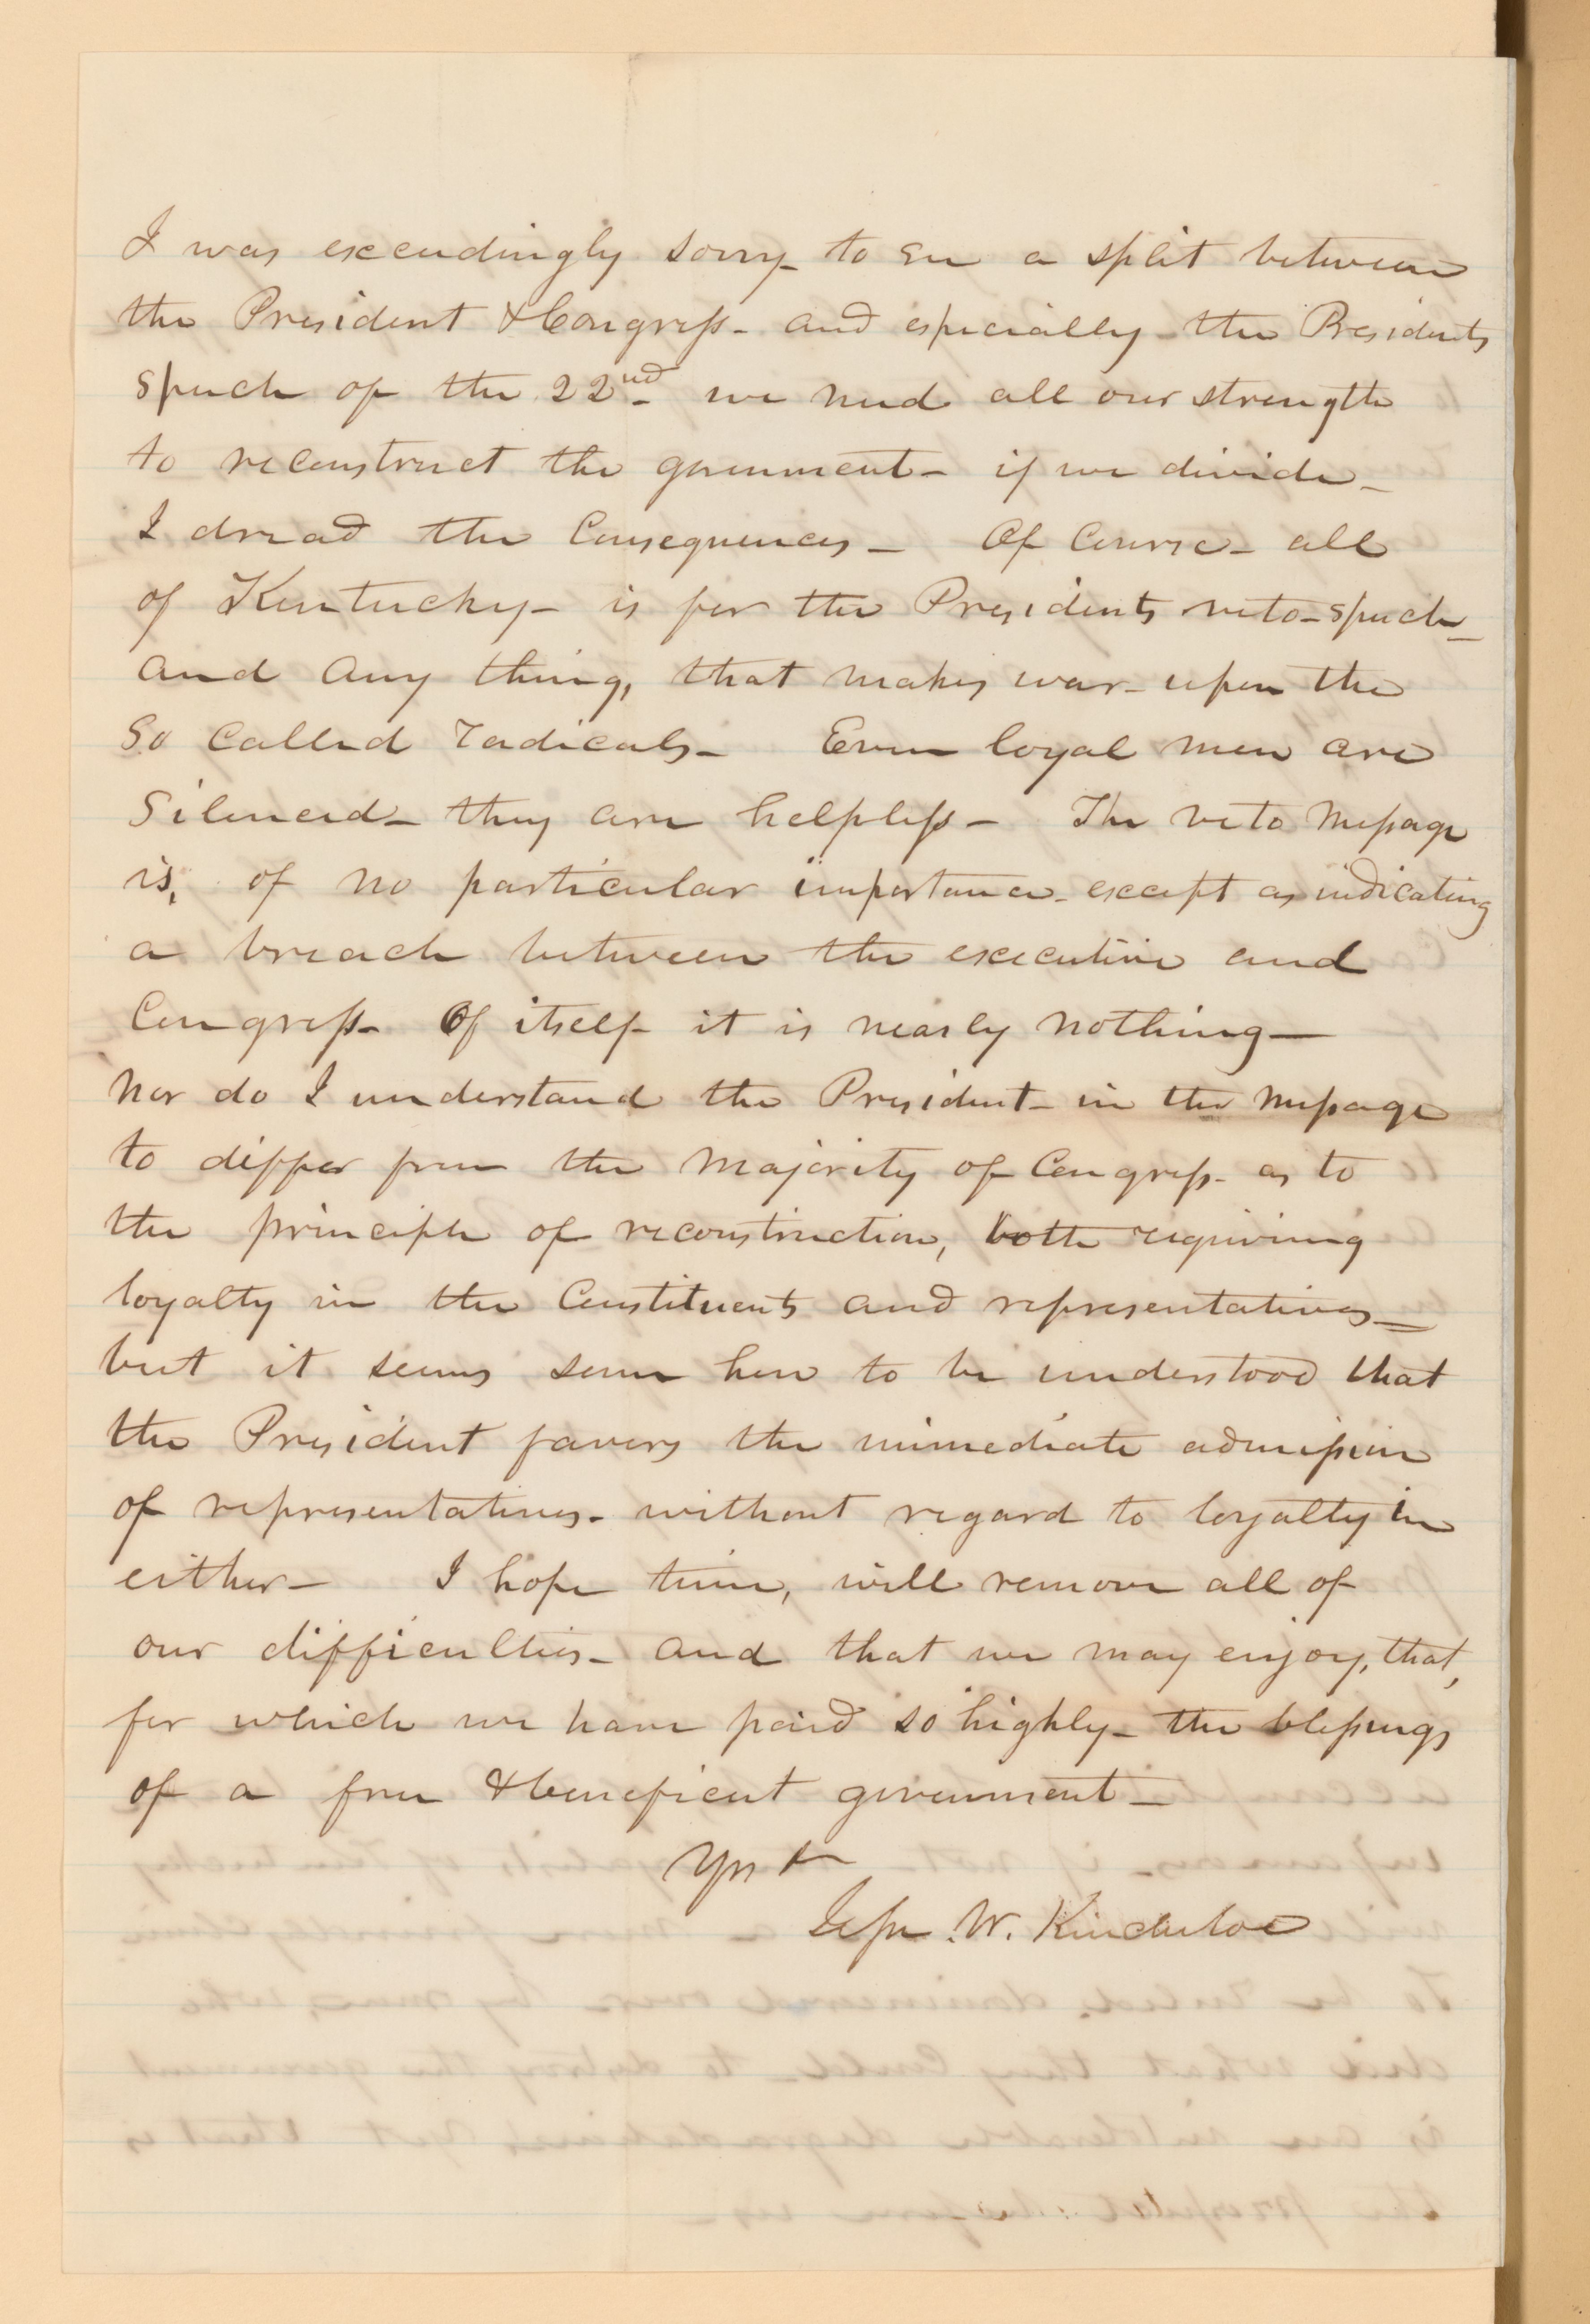 I was exceedingly sorry- to see a split between
the President & Congress- and especially- the Presidents
speech of the 22nd- we need all our strength
to reconstruct the government- if we divide-
I dread the Consequences- Of Course- all
of Kentucky- is for the Presidents veto- speech-
and any thing, that makes war- upon the
So Called radicals- Even loyal men are
Silenced- they are helpless- The veto Message
is, of no particular importance- except as indicating
a breach between the executive and
Congress- Of itself- it is nearly nothing-
Nor do I understand the President- in the Message
to differ from the Majority of Congress- as to
the principle of reconstruction, both requiring
loyalty in the Constituents and representatives-
but it seems some how to be understood that
the President favors the immediate admission
of representatives- without regard to loyalty in
either- I hope time, will remove all of
our difficulties- and that we may enjoy, that,
for which we have paid so highly- the blessings
of a free & beneficent government-
Yrs &c
Jesse W. Kincheloe